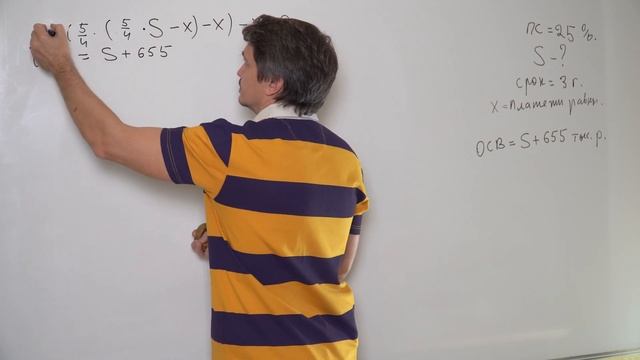 ( 5/4 · ( 5/4 · S - x) - x) -
= S + 655
ПС = 25 %.
S - ?
срок = 3 г.
x = платежи равн.
ОСВ = S + 655 тыс. р.